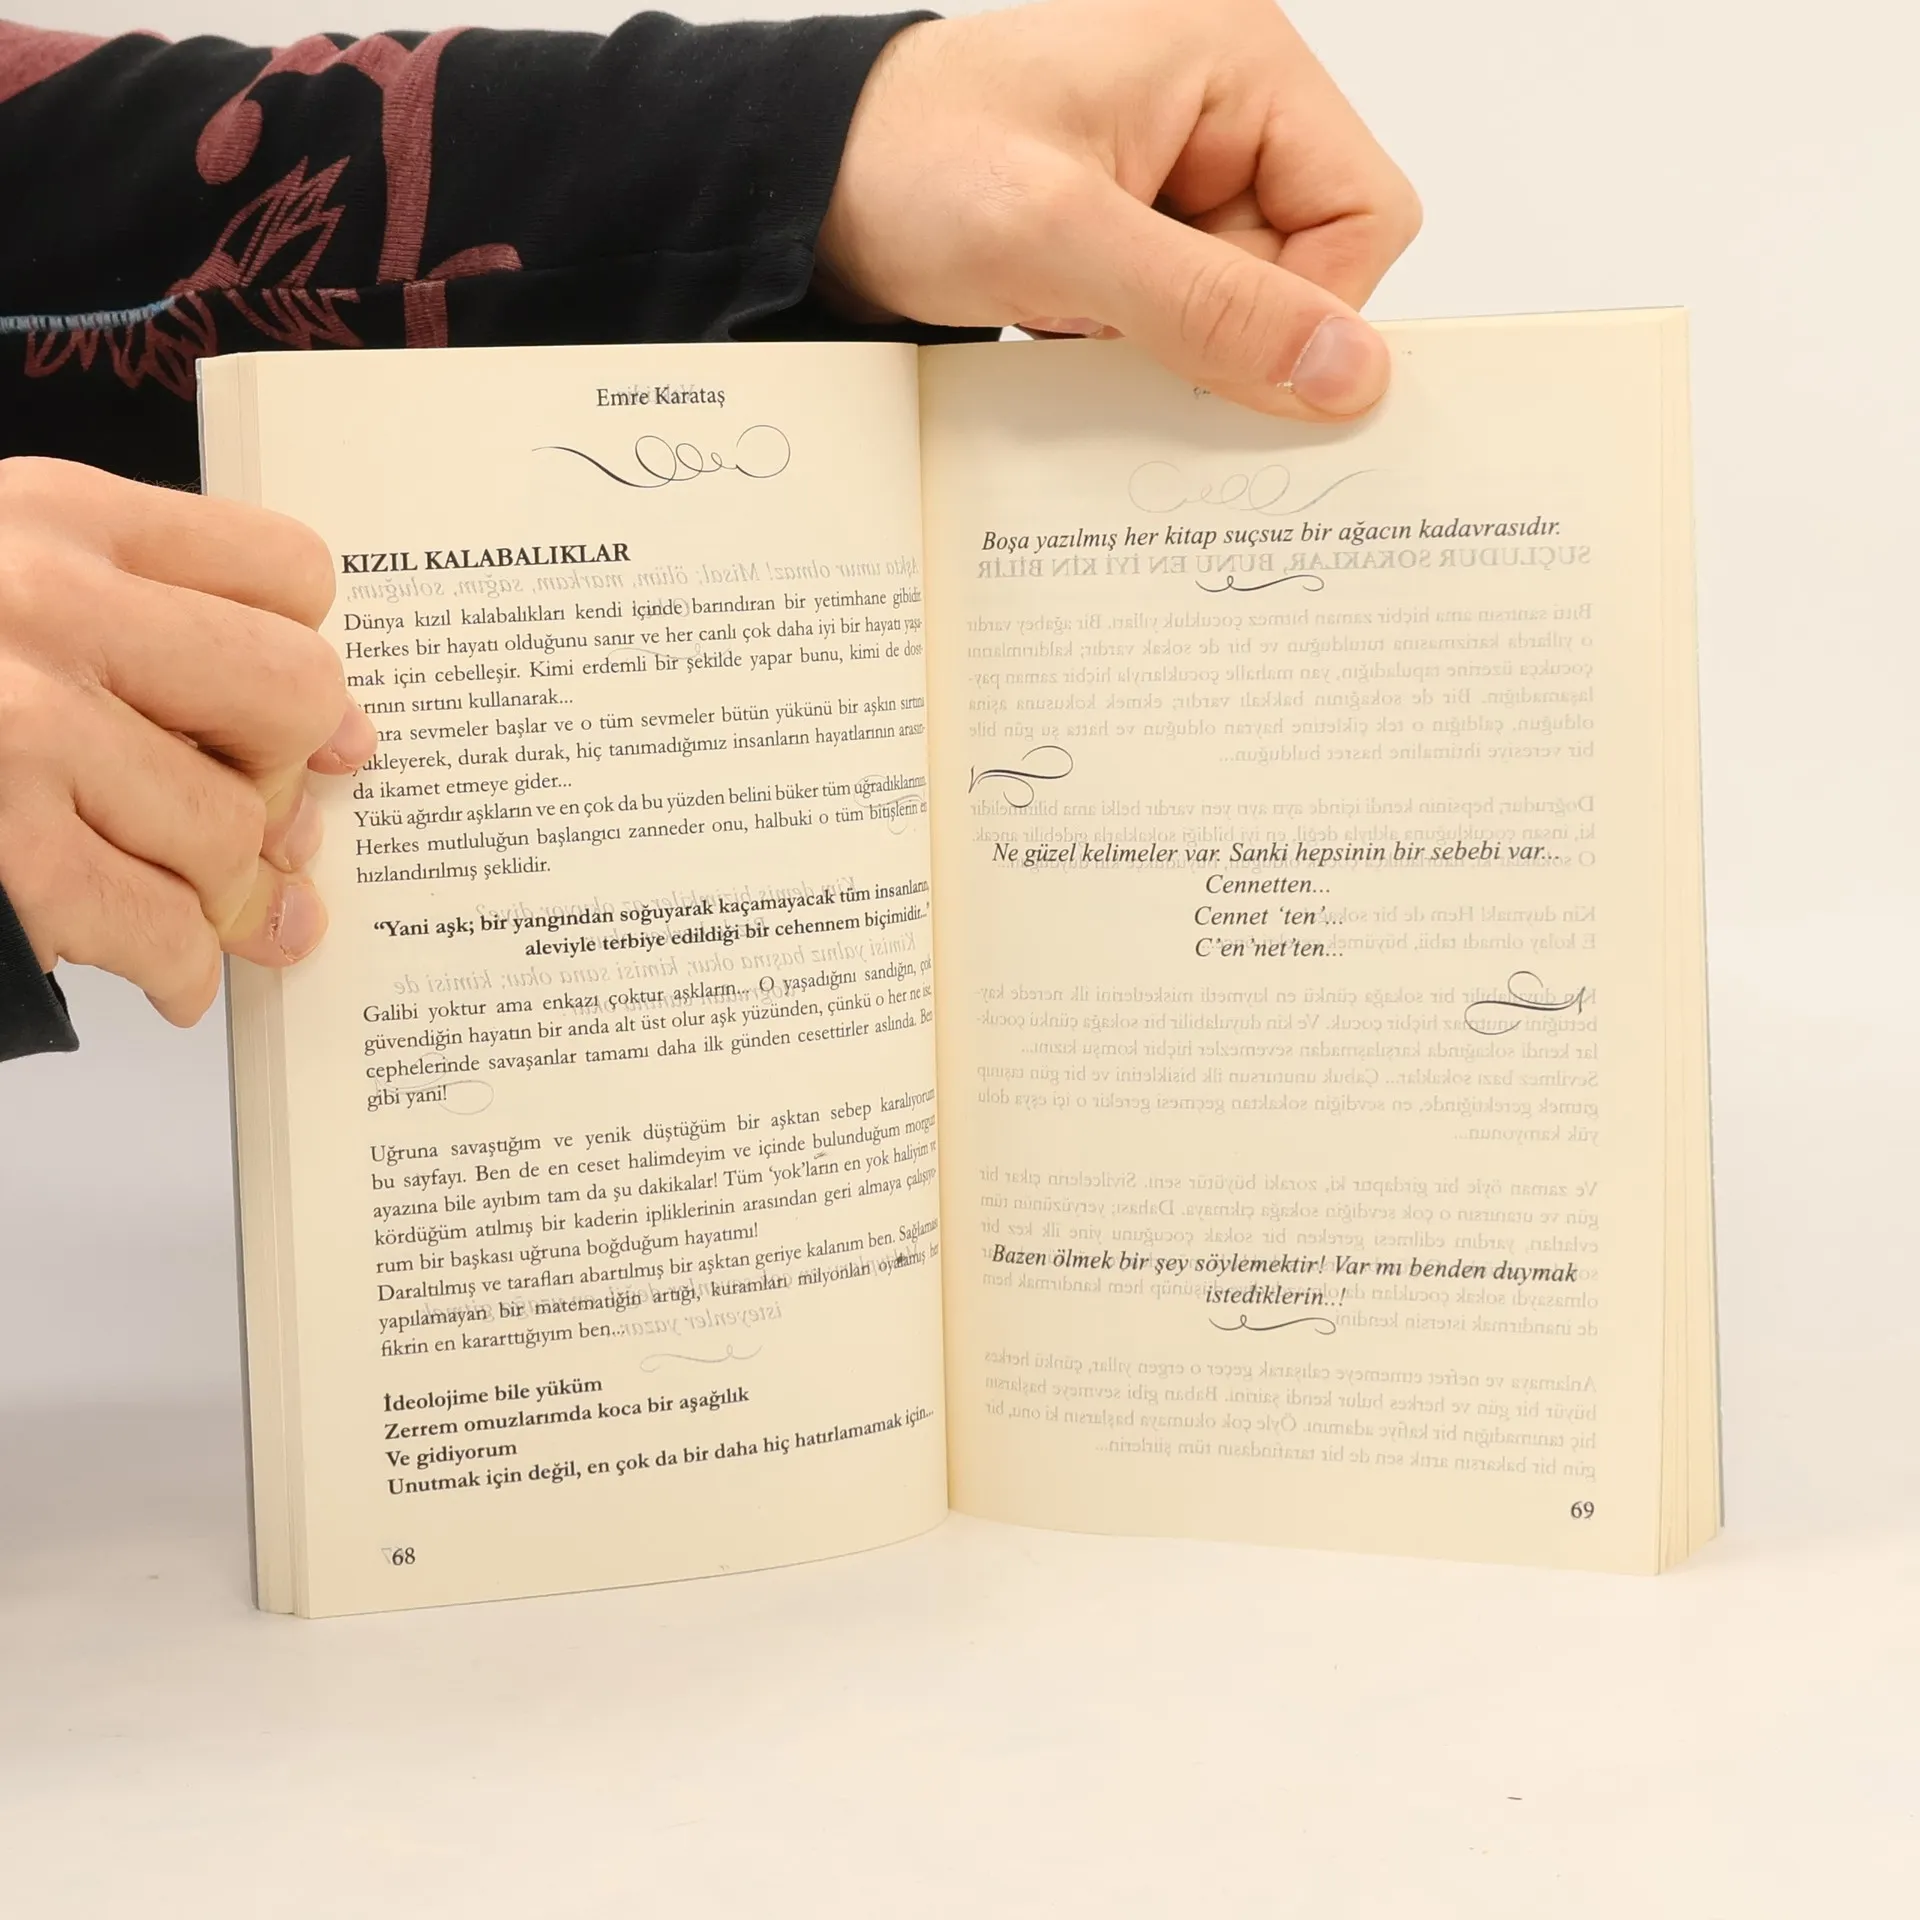 Emre Karataş
KIZIL KALABALIKLAR
Dünya kızıl kalabalıkları kendi içinde barındıran bir yetimhane gibidir.
Herkes bir hayatı olduğunu sanır ve her canlı çok daha iyi bir hayatı yaşa-
mak için cebelleşir. Kimi erdemli bir şekilde yapar bunu, kimi de dost-
rının sırtını kullanarak...
nra sevmeler başlar ve o tüm sevmeler bütün yükünü bir aşkın sırtına
yükleyerek, durak durak, hiç tanımadığımız insanların hayatlarının arasın-
da ikamet etmeye gider...
Yükü ağırdır aşkların ve en çok da bu yüzden belini büker tüm uğradıklarının.
Herkes mutluluğun başlangıcı zanneder onu, halbuki o tüm bitişlerin en
hızlandırılmış şeklidir.
“Yani aşk; bir yangından soğuyarak kaçamayacak tüm insanların,
aleviyle terbiye edildiği bir cehennem biçimidir..”
Galibi yoktur ama enkazı çoktur aşkların... O yaşadığını sandığın, çok
güvendiğin hayatın bir anda alt üst olur aşk yüzünden, çünkü o her ne ise,
cephelerinde savaşanlar tamamı daha ilk günden cesettirler aslında. Ben
gibi yani!
Uğruna savaştığım ve yenik düştüğüm bir aşktan sebep karalıyorum
bu sayfayı. Ben de en ceset halimdeyim ve içinde bulunduğum morgun
ayazına bile ayıbım tam da şu dakikalar! Tüm ‘yok’ların en yok haliyim ve
kördüğüm atılmış bir kaderin ipliklerinin arasından geri almaya çalışıyo-
rum bir başkası uğruna boğduğum hayatımı!
Daraltılmış ve tarafları abartılmış bir aşktan geriye kalanım ben. Sağlaması
yapılamayan bir matematiğin artığı, kuramları milyonları oyalamış bir
fikrin en kararttığıyım ben...
İdeolojime bile yüküm
Zerrem omuzlarımda koca bir aşağılık
Ve gidiyorum
Unutmak için değil, en çok da bir daha hiç hatırlamamak için...
68
Boşa yazılmış her kitap suçsuz bir ağacın kadavrasıdır.
Ne güzel kelimeler var. Sanki hepsinin bir sebebi var...
Cennetten...
Cennet ‘ten’...
C’en’net’ten...
Bazen ölmek bir şey söylemektir! Var mı benden duymak
istediklerin..!
69